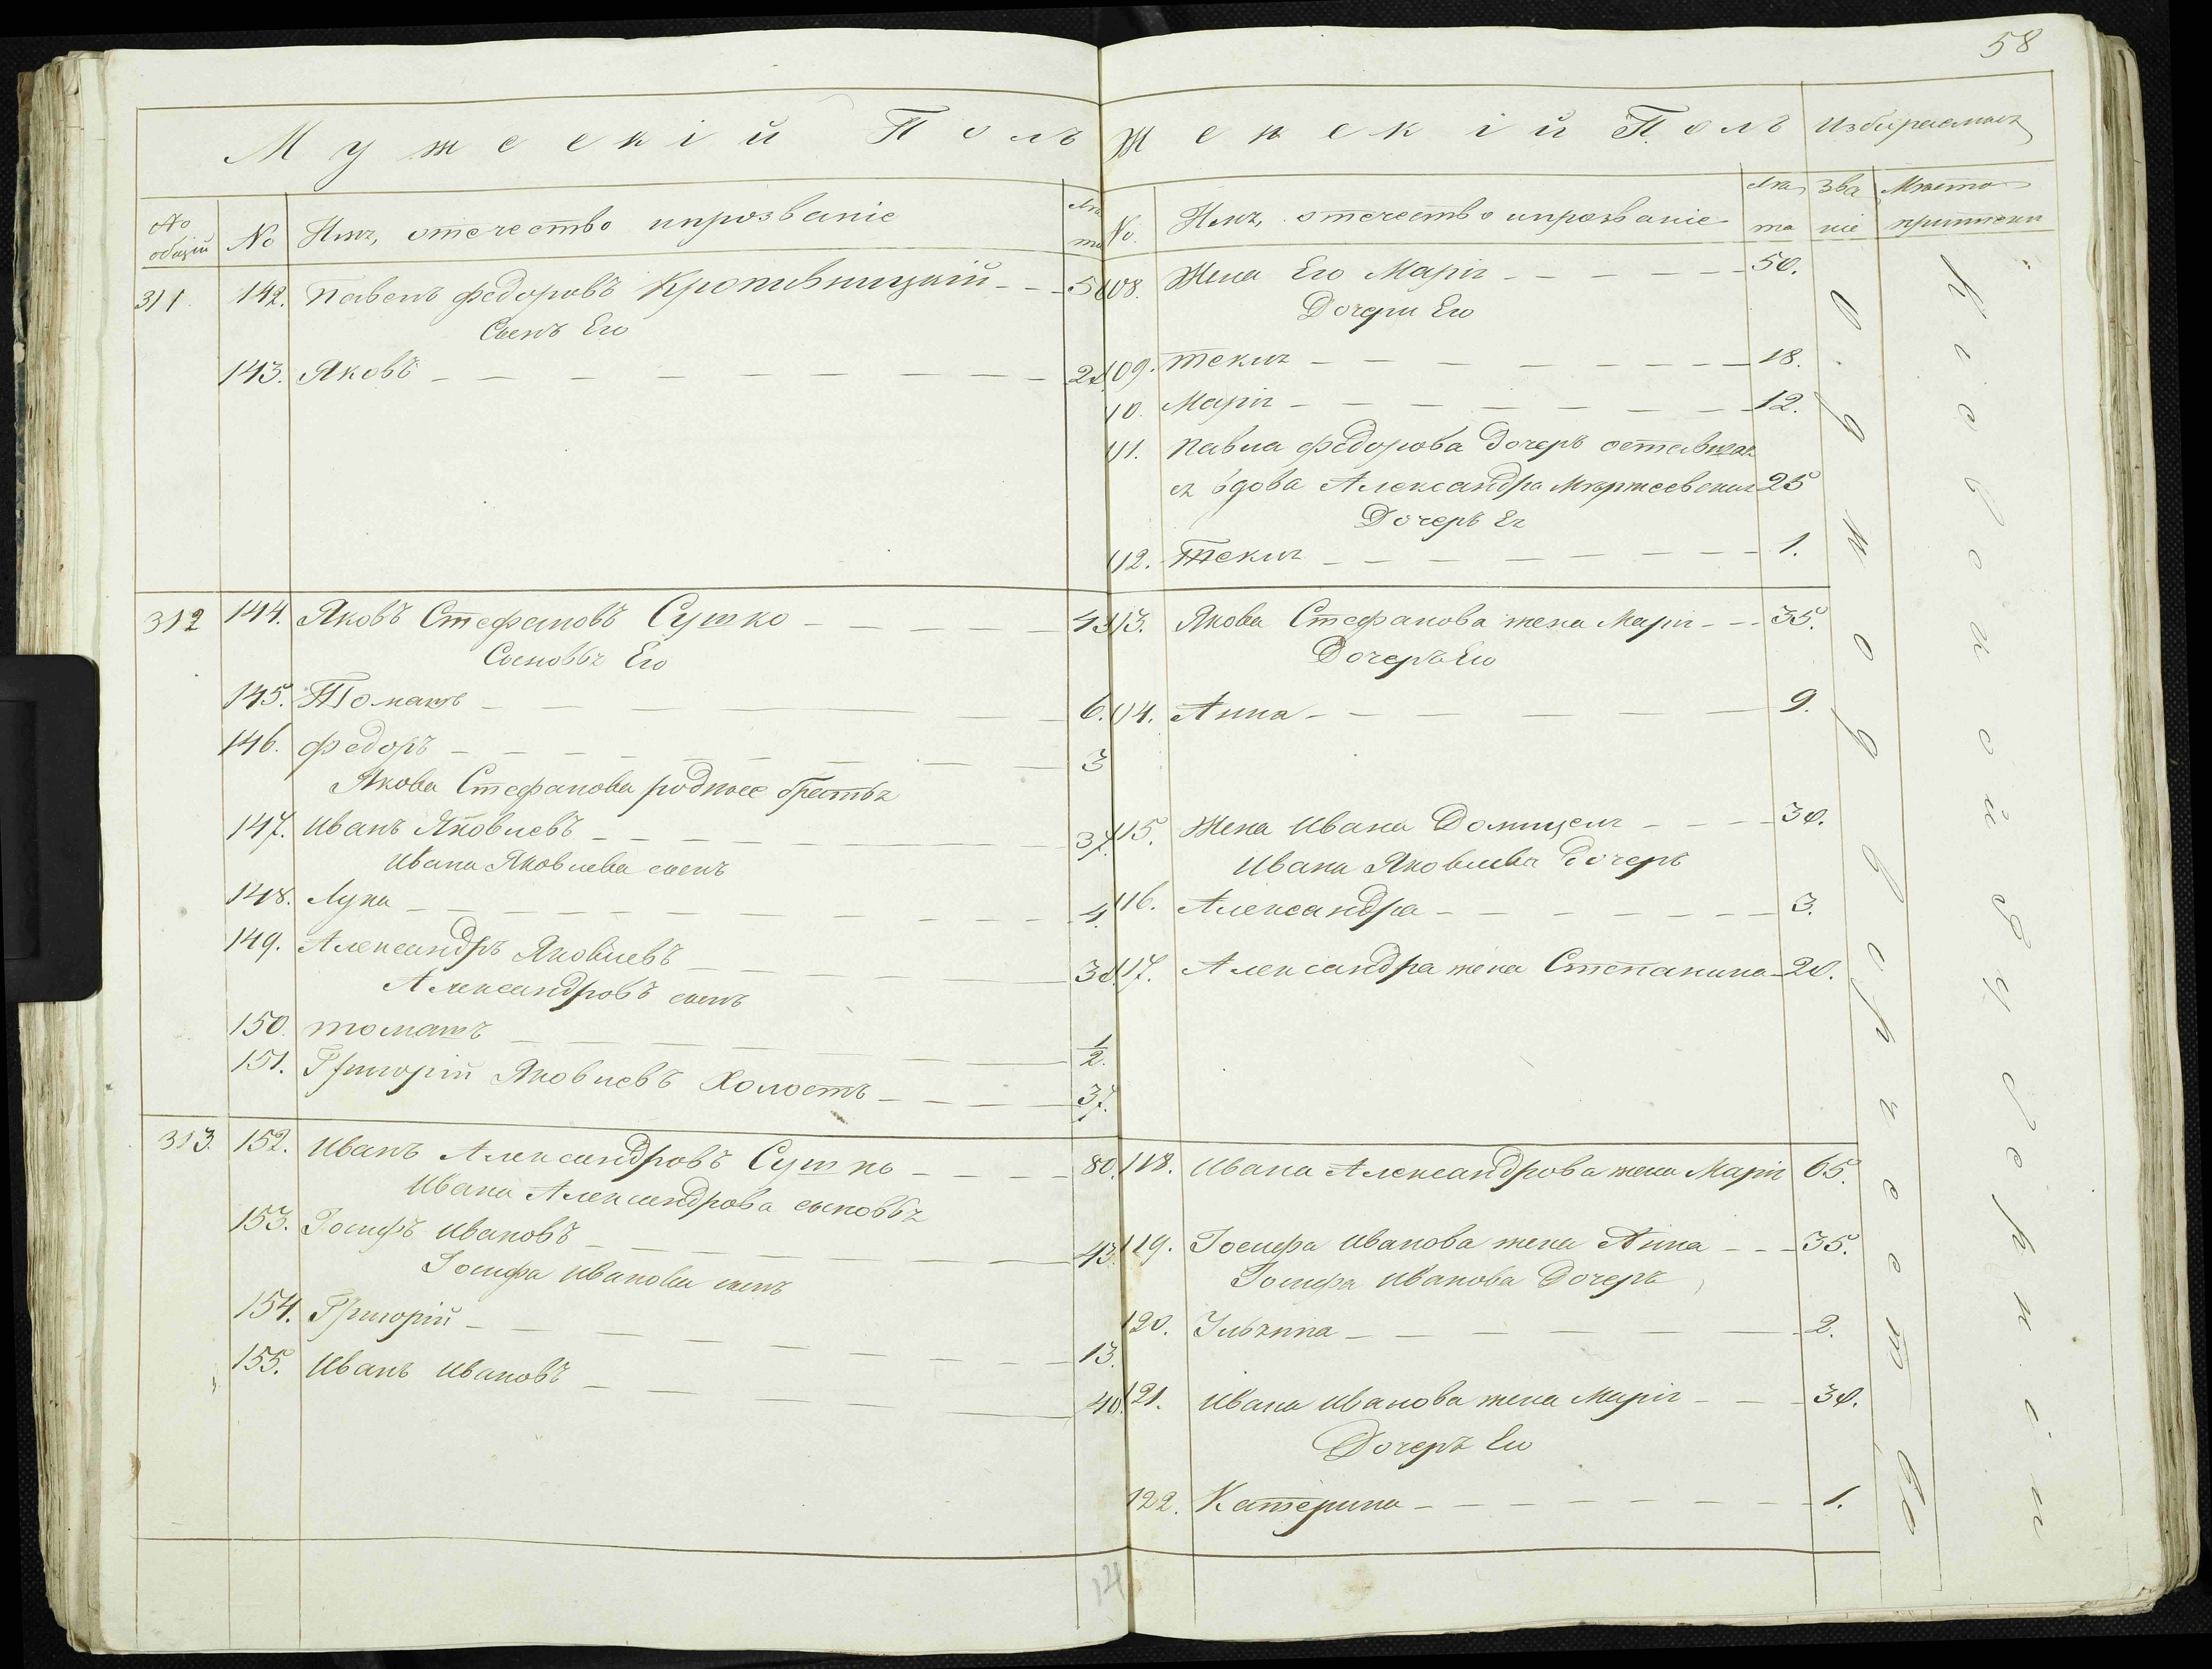 58
Мужескій Полъ
№ общій
№
Имя, отечество ипрозваніе
Лѣта
311. 142. Павелъ Федоровъ Кропивницкій
Сынъ Его
143. Яковъ
312 144. Яковъ Стефановъ Сушко
Сыновья Его
145. Томашъ 6.
146. Федоръ 3
Якова Стефанова родные братья
147. Иванъ Яковлевъ 37.
Ивана Яковлева сынъ
148. Лука 4.
149. Александръ Яковлевъ
Александровъ сынъ
150. томашъ 1/2.
151. Григорій Яковлевъ Холостъ 37.
313. 152. Иванъ Александровъ Сушко 80.
Ивана Александрова сыновья
153. Іосифъ Ивановъ 43.
Іосифа Иванова сынъ
154. Григорій 13.
155. Иванъ Ивановъ 40.
Женскій Полъ
Избираемыя
№.
Имя, отечество ипрозваніе
Лѣта
Званіе
Мѣсто приписки
108. Жена Его Марія 50.
Дочери Его
109. Текля 18.
110. Марія 12.
111. Павла Федорова дочеръ оставшая
ся вдова Александра 25
Дочеръ Ея
112. Текля 1.
113. Якова Стефанова жена Марія 35.
Дочеръ Его
114. Анна 9.
115. Жена Ивана Домицеля 30.
Ивана Яковлева дочеръ
116. Александра 3.
117. Александра жена Степанина 20.
118. Ивана Александрова жена Марія 65.
119. Іосифа Иванова жена Анна 35.
Іосифа Иванова Дочеръ
120. Ульяна 2.
121. Ивана Иванова жена Марія 30.
Дочеръ Его
122. Катерина 1.
Однодворческое
Кіевской Губерніи